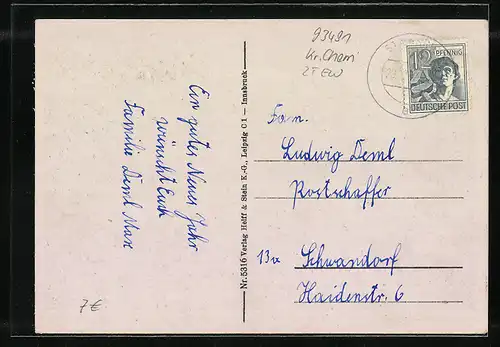 93491
Kr. Chami
2T EW
12 PFENNIG
DEUTSCHE POST
Ein gutes Neues Jahr
wünscht Euch
Familie Deml Max
Nr. 5316 Verlag Helff & Stein K.-G., Leipzig C 1 — Innsbruck
Fam.
Ludwig Deml
Postschaffer
13a Schwandorf
Haidenstr. 6
7€